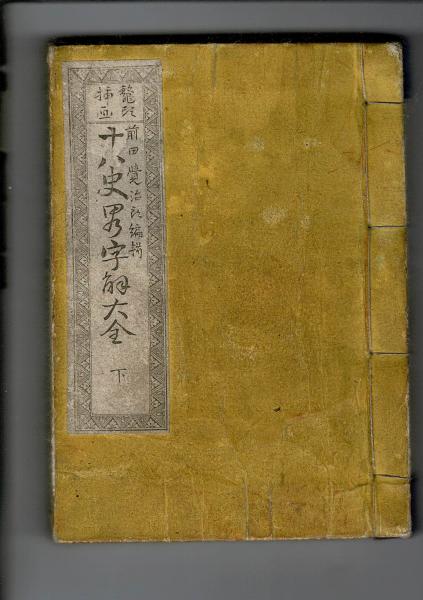 鼇頭
插画
前田覺治郎編輯
十八史畧字解大全
下